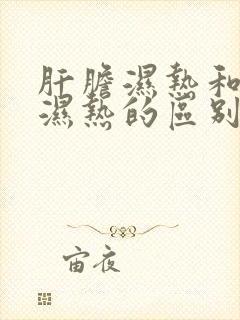 肝膽濕熱和
濕熱的區別
宙夜